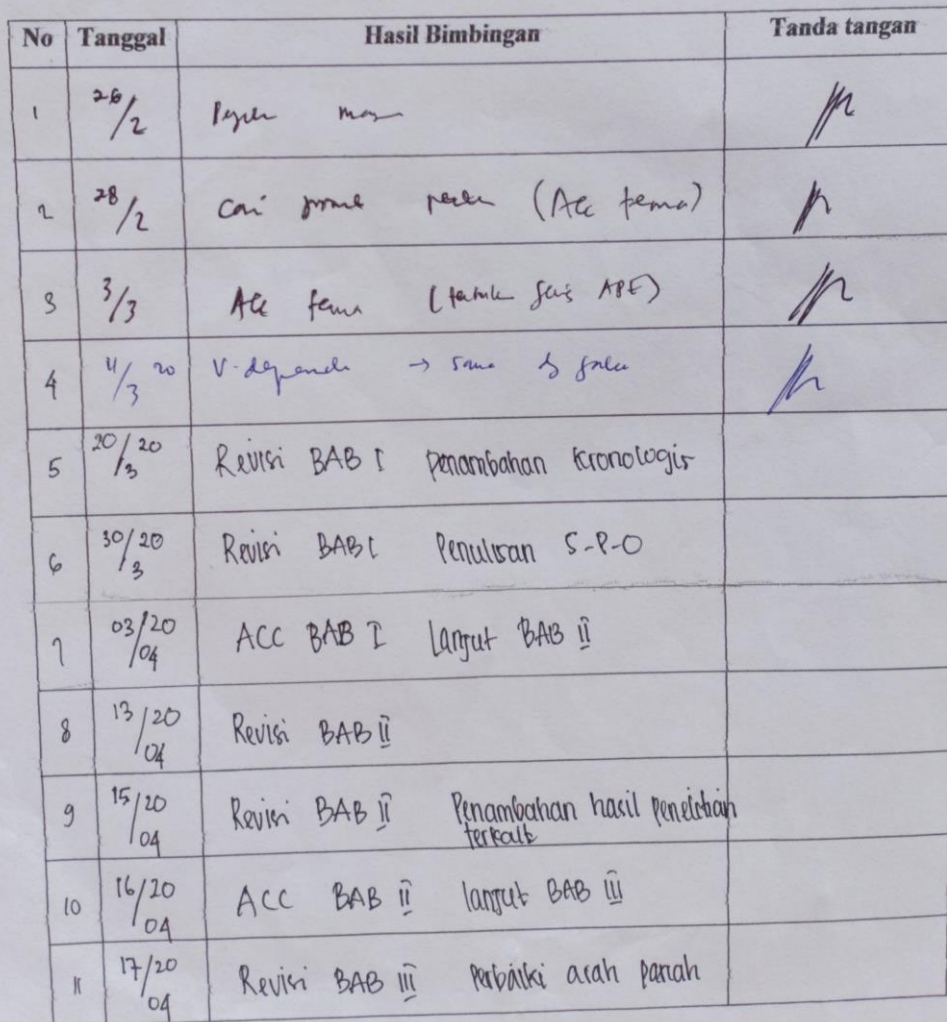 No Tanggal Hasil Bimbingan Tanda tangan
1 26/2
2 28/2 cari (Acc tema)
3 3/3 Acc tema
4 4/3 20 V. → sama
5 20/20/3 Revisi BAB I penambahan kronologis
6 30/20/3 Revisi BAB I Penulisan S-P-O
7 03/20/04 ACC BAB I lanjut BAB II
8 13/20/04 Revisi BAB II
9 15/20/04 Revisi BAB II Penambahan hasil penelitian
terkait
10 16/20/04 ACC BAB II lanjut BAB III
11 17/20/04 Revisi BAB III Perbaiki arah panah